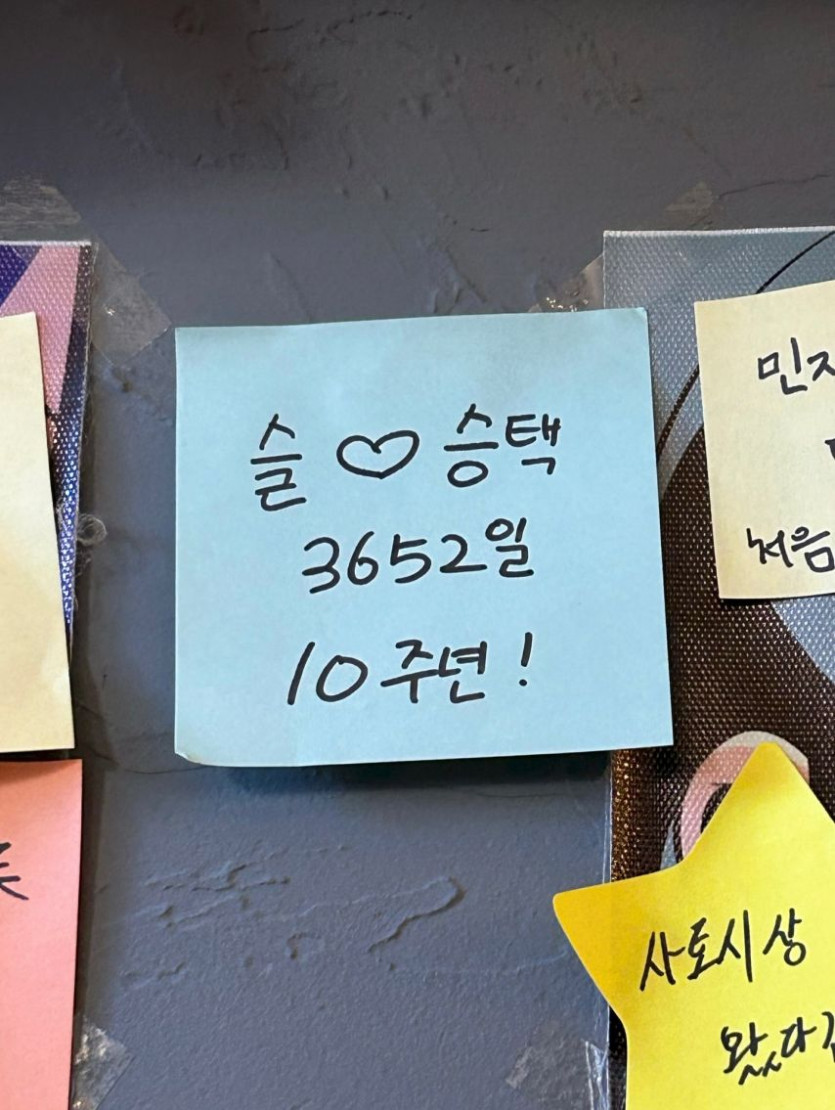 슬 ♡ 승택
3652일
10주년!
민지
처음
사토시상
왔다감